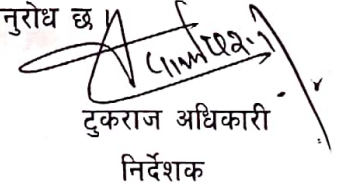 नुरोध छ ।
टुकराज अधिकारी
निर्देशक